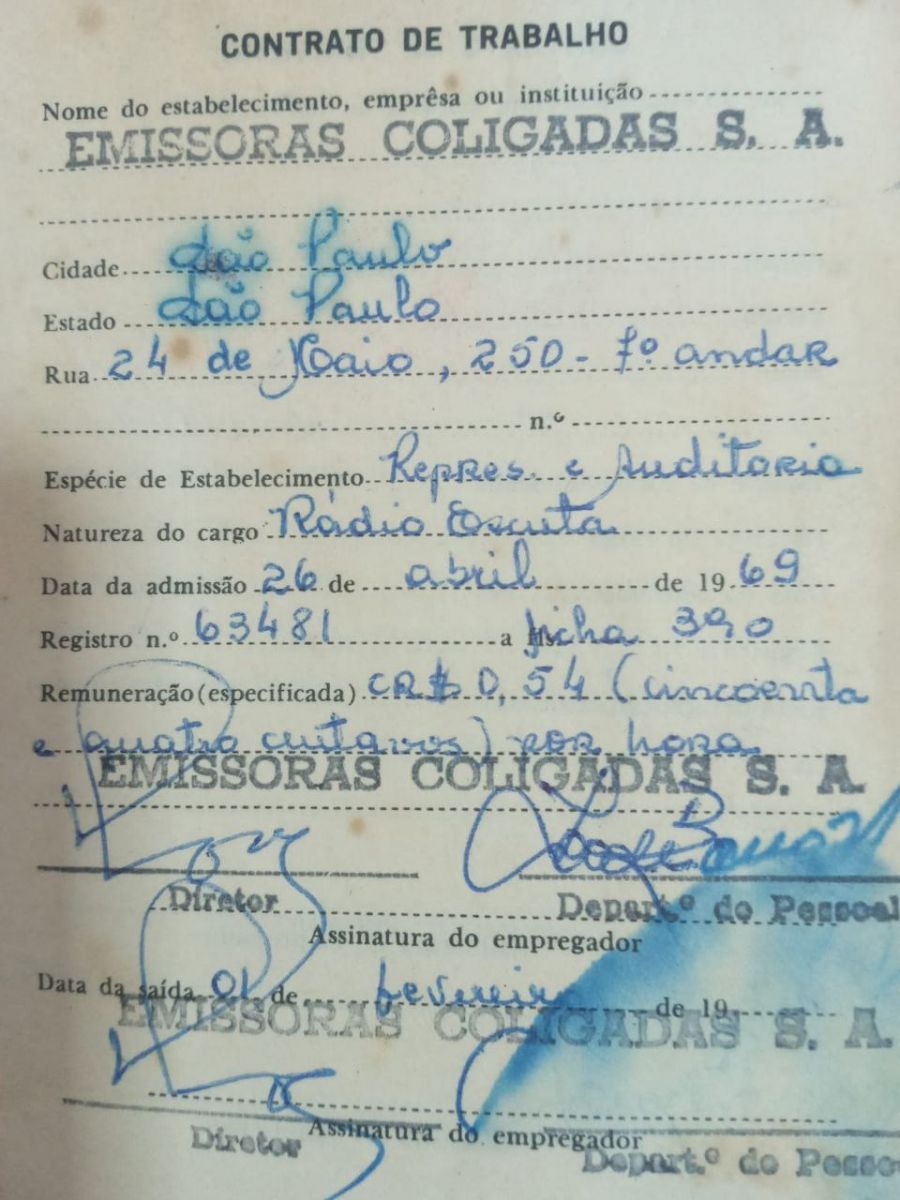 CONTRATO DE TRABALHO
Nome do estabelecimento, emprêsa ou instituição
EMISSORAS COLIGADAS S. A.
Cidade São Paulo
Estado São Paulo
Rua 24 de Maio, 250 - 7º andar
n.º
Espécie de Estabelecimento Repres. e Auditoria
Natureza do cargo Rádio Escuta
Data da admissão 26 de abril de 19 69
Registro n.º 63481 a ficha 390
Remuneração (especificada) CR$ 0,54 (cincoenta
e quatro centavos) por hora
EMISSORAS COLIGADAS S. A.
Diretor Depart.º do Pessoal
Assinatura do empregador
Data da saída 01 de fevereiro de 19
EMISSORAS COLIGADAS S. A.
Diretor Assinatura do empregador
Depart.º do Pesso